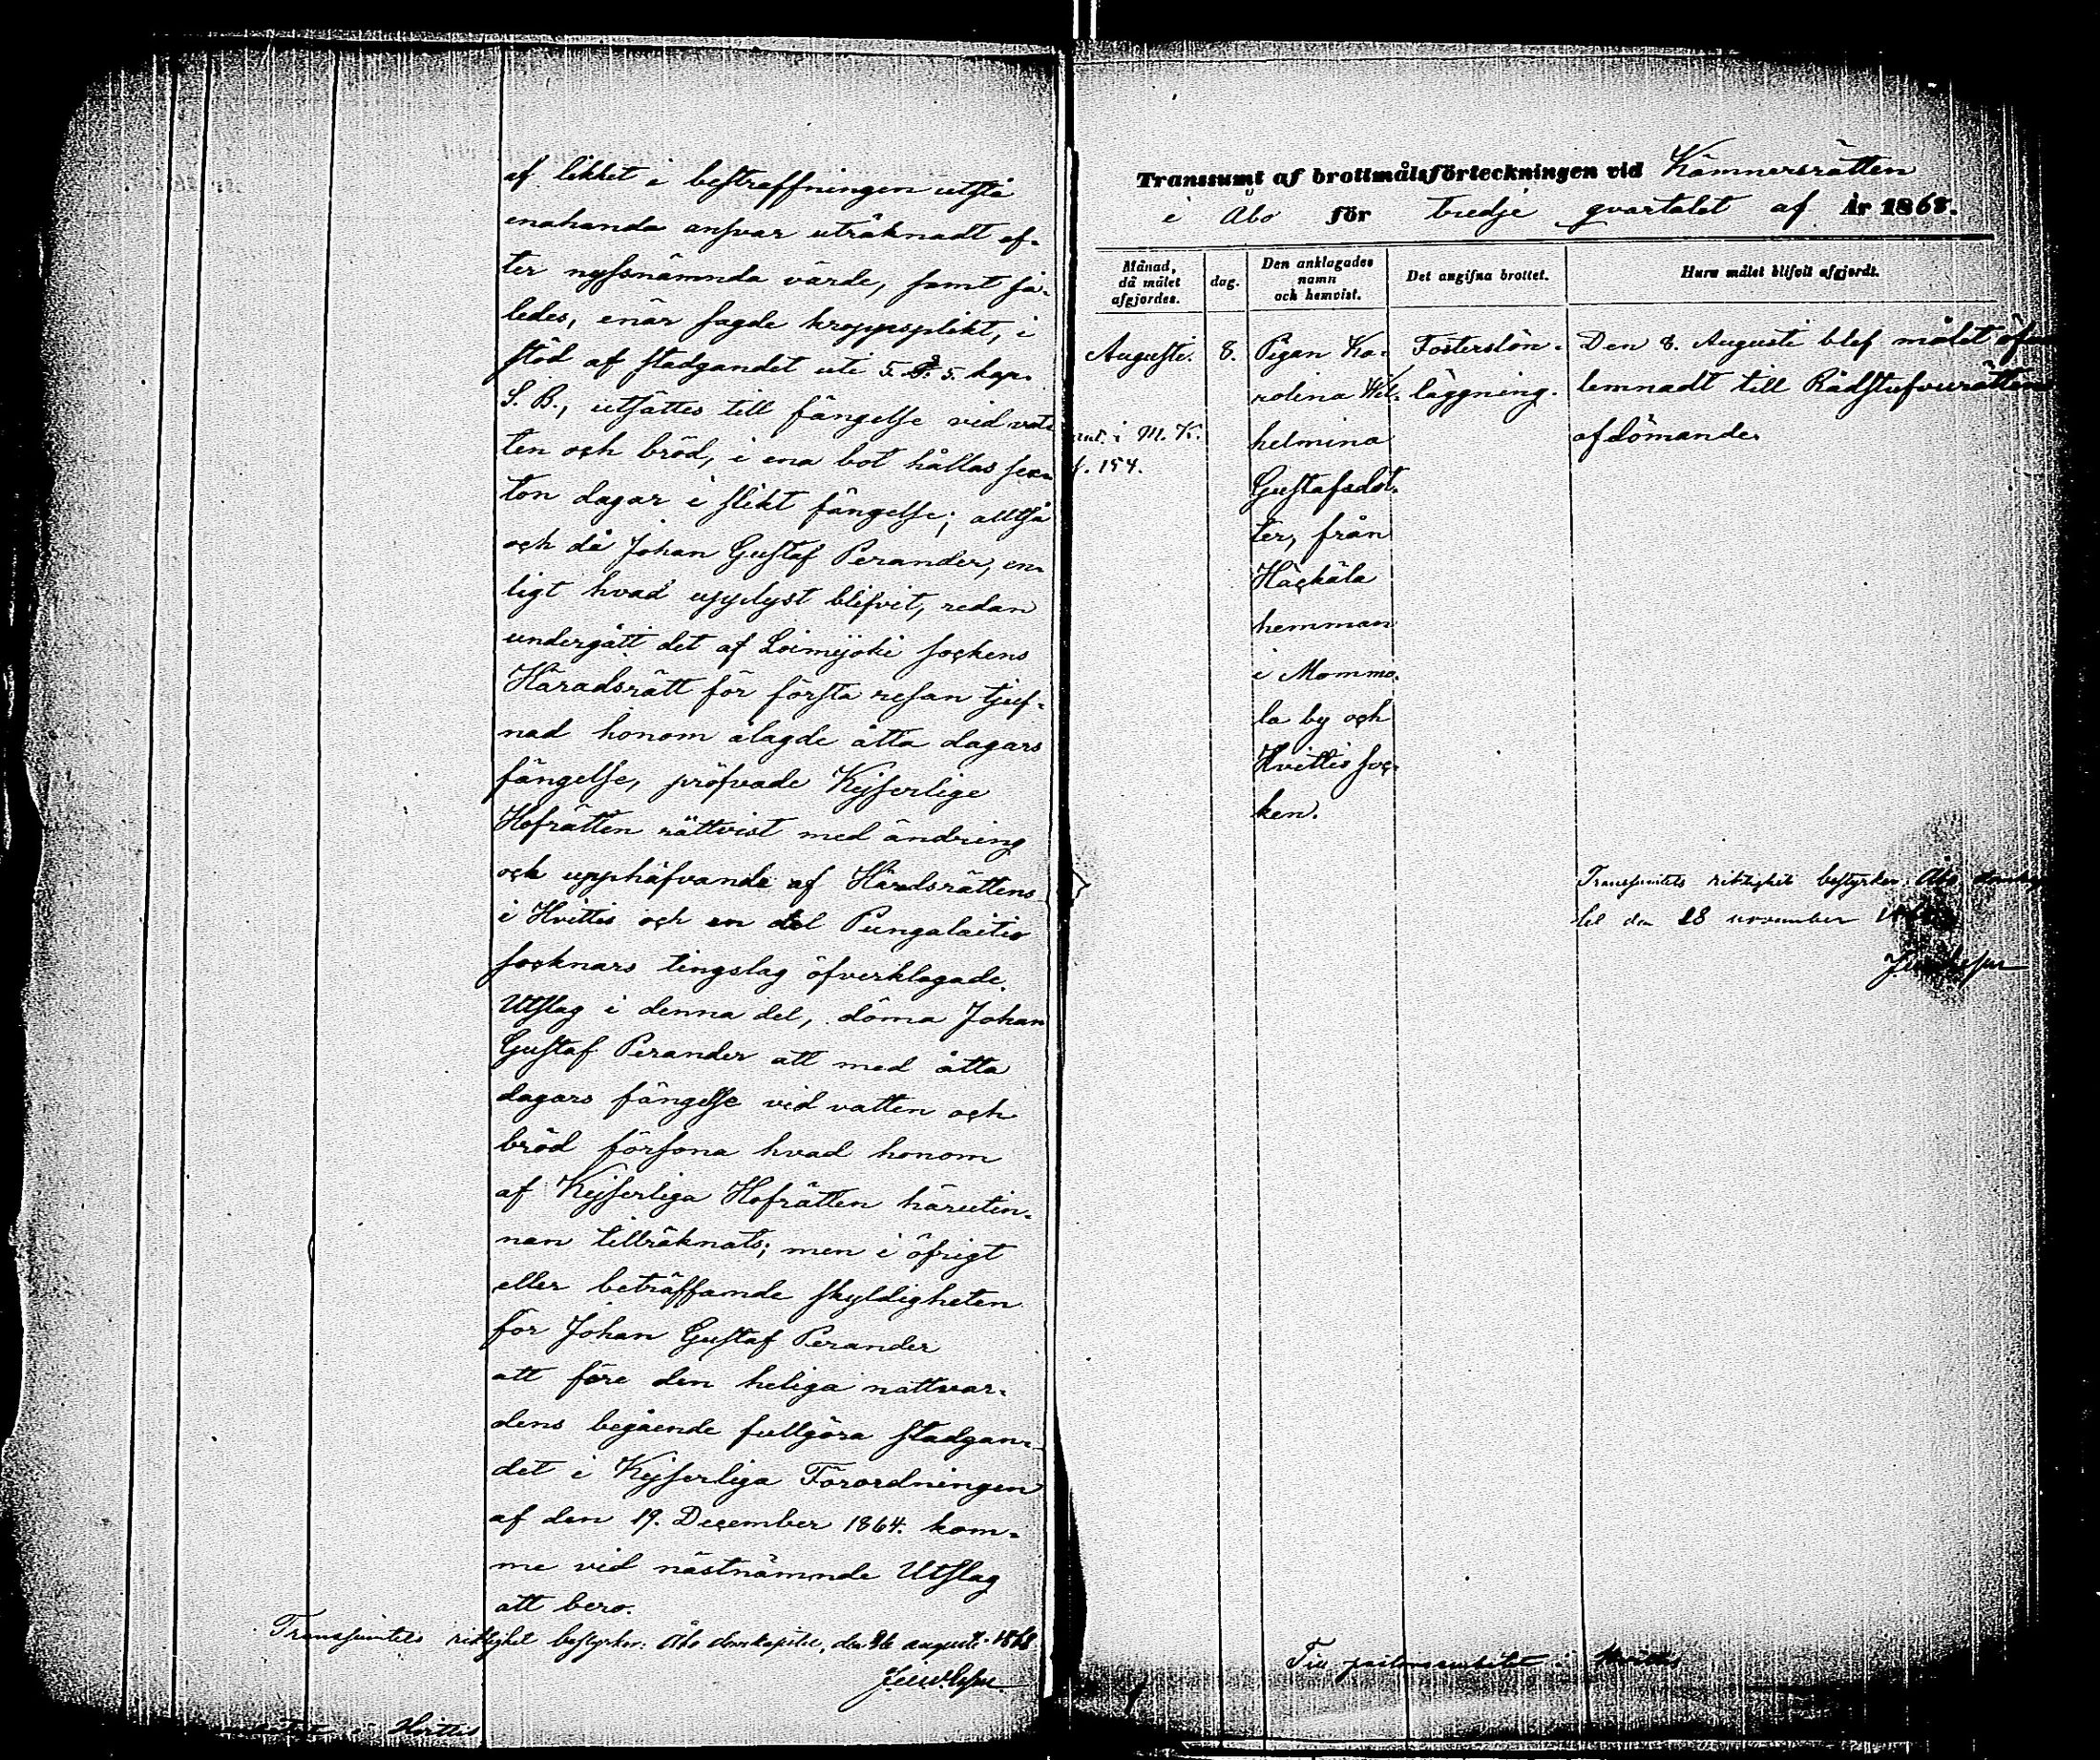 af likhet i bestraffningen utstå
enahanda ansvar uträknadt ef-
ter nyssnämnda värde, samt så-
ledes, enär sagde kroppsplikt, i
stöd af stadgandet uti 5. §. 5. kap.
S. B., utsättes till fängelse vid vat-
ten och bröd, i ena bot hållas sex-
ton dagar i slikt fängelse; alltså
och då Johan Gustaf Perander, en-
ligt hvad upplyst blifvit, redan
undergått det af Loimijoki sockens
Häradsrätt för första resan tjuf-
nad honom ålagde åtta dagars
fängelse, pröfvade Kejserlige
Hofrätten rättvist med ändring
och upphäfvande af Häradsrättens
i Hvittis och en del Pungalaitio
socknars tingslag öfverklagade
Utslag i denna del, döma Johan
Gustaf Perander att med åtta
dagars fängelse vid vatten och
bröd försona hvad honom
af Kejserliga Hofrätten härutin-
nan tillräknats; men i öfrigt
eller beträffande skyldigheten
för Johan Gustaf Perander
att före den heliga nattvar-
dens begående fullgöra stadgan-
det i Kejserliga Förordningen
af den 19. December 1864. kom-
me vid nästnämnde Utslag
att bero.
Transsumtets riktighet bestyrker: Åbo domkapitel, den 26 augusti 1868.
i Hvittis
Transsumt af brottmålsförteckningen vid Kämnersrätten
i Åbo för tredje qvartalet af År 1868.
Månad, då målet afgjordes.
dag.
Den anklagades namn och hemvist.
Det angifna brottet.
Huru målet blifvit afgjordt.
Augusti. 8. Pigan Ka- Fosterslön- Den 8. Augusti blef målet
rolina Wil- läggning. lemnadt till Rådstufvurättens
ant. i M. K. helmina afdömande.
f. 154.
Gustafsdot-
ter, från
Häckäla
hemman
i Momma-
la by och
Hvittis soc-
ken.
Transsumtets riktighet bestyrker. Åbo
tel den 28 november
Till pastorsembetet i Hvittis